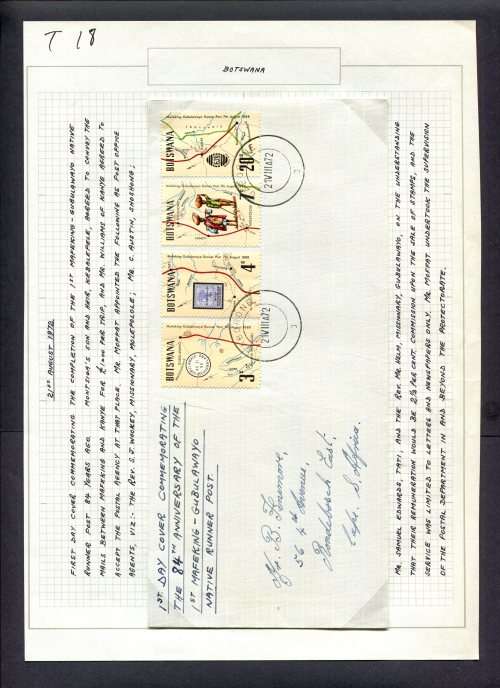 T 18
BOTSWANA
21ST AUGUST 1972
FIRST DAY COVER COMMEMORATING THE COMPLETION OF THE 1ST MAFEKING-GUBULAWAYO NATIVE
RUNNER POST 84 YEARS AGO. MONTSIOA'S SON AND HEIR, KEBALEPILE, AGREED TO CONVEY THE
MAILS BETWEEN MAFEKING AND KANYE FOR PER TRIP, AND MR. WILLIAMS OF KANYE AGREED TO
ACCEPT THE POSTAL AGENCY AT THAT PLACE. MR. MOFFAT APPOINTED THE FOLLOWING AS POST OFFICE
AGENTS, VIZ: THE REV. S. J. WOOKEY, MISSIONARY, MOLEPOLOLE; MR. C. AUSTIN, SHOSHONG;
Mafeking Gubulawayo Runner Post 9th August 1888
BOTSWANA
20c
Mafeking Gubulawayo Runner Post 9th August 1888
BOTSWANA
7c
Mafeking Gubulawayo Runner Post 9th August 1888
BOTSWANA
4c
Mafeking Gubulawayo Runner Post 9th August 1888
BOTSWANA
3c
21 VIII 1972
21 VIII 1972
1ST DAY COVER COMMEMORATING
THE 84TH ANNIVERSARY OF THE
1ST MAFEKING-GUBULAWAYO
NATIVE RUNNER POST.
56 4th Avenue,
Rondebosch East,
Cape. S. Africa.
MR. SAMUEL EDWARDS, TATI, AND THE REV. MR. HELM, MISSIONARY, GUBULAWAYO, ON THE UNDERSTANDING
THAT THEIR REMUNERATION WOULD BE 2½ PER CENT. COMMISSION UPON THE SALE OF STAMPS, AND THE
SERVICE WAS LIMITED TO LETTERS AND NEWSPAPERS ONLY. MR. MOFFAT UNDERTOOK THE SUPERVISION
OF THE POSTAL DEPARTMENT IN AND BEYOND THE PROTECTORATE.